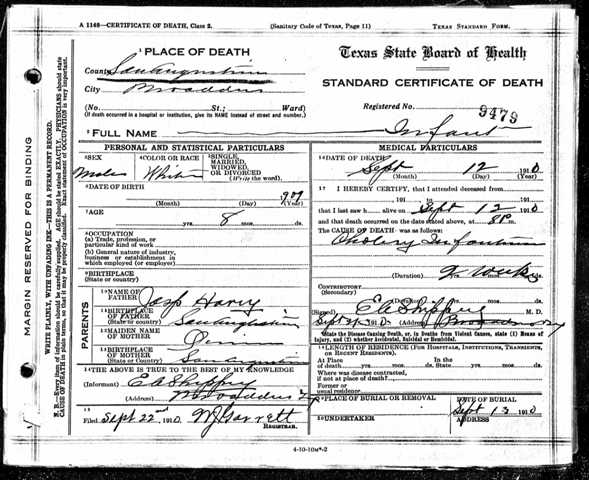 A 1148—CERTIFICATE OF DEATH, Class 2. (Sanitary Code of Texas, Page 11) TEXAS STANDARD FORM.
MARGIN RESERVED FOR BINDING
WRITE PLAINLY, WITH UNFADING INK—THIS IS A PERMANENT RECORD.
N. B.—Every item of information should be carefully supplied. AGE should be stated EXACTLY. PHYSICIANS should state
CAUSE OF DEATH in plain terms, so that it may be properly classified. Exact statement of OCCUPATION is very important.
1 PLACE OF DEATH
County San Augustine
City Broaddus
(No. St.; Ward)
(If death occurred in a hospital or institution, give its NAME instead of street and number.)
Texas State Board of Health
STANDARD CERTIFICATE OF DEATH
Registered No. 9479
2 FULL NAME Infant
PERSONAL AND STATISTICAL PARTICULARS
3 SEX
Male
4 COLOR OR RACE
White
5 SINGLE,
MARRIED,
WIDOWED,
OR DIVORCED
(Write the word).
6 DATE OF BIRTH
(Month) (Day) (Year)
7 AGE
yrs. 8 mos. ds.
8 OCCUPATION
(a) Trade, profession, or
particular kind of work
(b) General nature of industry,
business or establishment in
which employed (or employer)
9 BIRTHPLACE
(State or country)
PARENTS
10 NAME OF
FATHER
11 BIRTHPLACE
OF FATHER
(State or country) San Augustine
12 MAIDEN NAME
OF MOTHER
13 BIRTHPLACE
OF MOTHER
(State or Country) San Augustine
14 THE ABOVE IS TRUE TO THE BEST OF MY KNOWLEDGE
(Informant)
(Address) Broaddus
15
Filed Sept 22nd 1910 WJ Garrett
REGISTRAR.
MEDICAL PARTICULARS
16 DATE OF DEATH
Sept 12 1910
(Month) (Day) (Year)
17 I HEREBY CERTIFY, that I attended deceased from
191 to 191
that I last saw h alive on Sept 12 1910
and that death occurred on the date stated above, at 8P m.
The CAUSE OF DEATH was as follows:
Cholery Infantum
(Duration) 2 weeks ds.
CONTRIBUTORY
(Secondary)
(Duration) ds.
(Signed) M. D.
Sept 1910 (Address)
State the Disease Causing Death, or, in Deaths from Violent Causes, state (1) Means of
Injury, and (2) whether Accidental, Suicidal or Homicidal.
18 LENGTH OF RESIDENCE (FOR HOSPITALS, INSTITUTIONS, TRANSIENTS,
OR RECENT RESIDENTS).
At Place In the
of death yrs. mos. ds. State yrs. mos. ds.
Where was disease contracted,
if not at place of death?
Former or
usual residence
19 PLACE OF BURIAL OR REMOVAL DATE OF BURIAL
Sept 13 1910
20 UNDERTAKER ADDRESS
4-10-10m-2